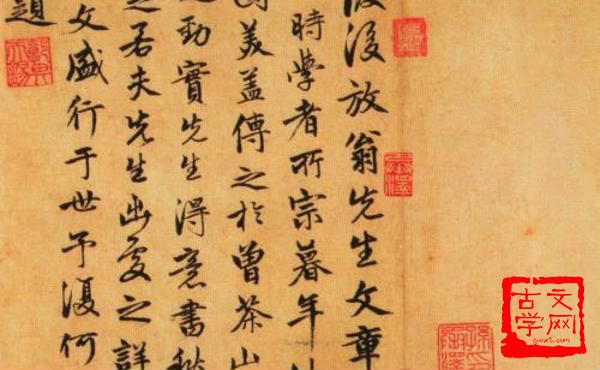 渡後放翁先生文章
時學者所宗暮年
美蓋傳之於曾茶山
勁實先生得意書
之若夫先生出處之詳
文盛行于世予復何
題
古文学网